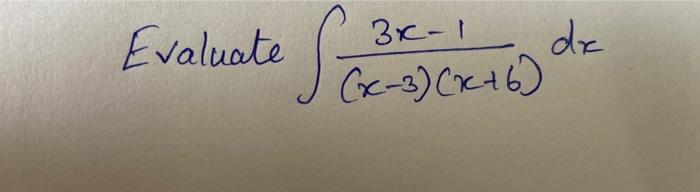 Evaluate ∫ (3x-1)/((x-3)(x+6)) dx